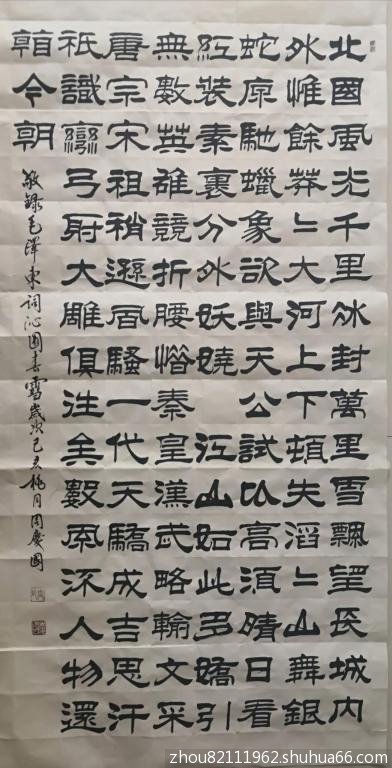 北國風光千里冰封萬里雪飄望長城内
外惟餘莽〻大河上下頓失滔〻山舞銀
蛇原馳蠟象欲與天公試比高須晴日看
紅裝素裹分外妖嬈 江山如此多嬌引
無數英雄競折腰惜秦皇漢武略輸文采
唐宗宋祖稍遜風騷一代天驕成吉思汗
祇識彎弓射大雕俱往矣數風流人物還
看今朝
敬錄毛澤東詞沁園春雪歲次己亥桃月周慶國
zhou82111962.shuhua66.com